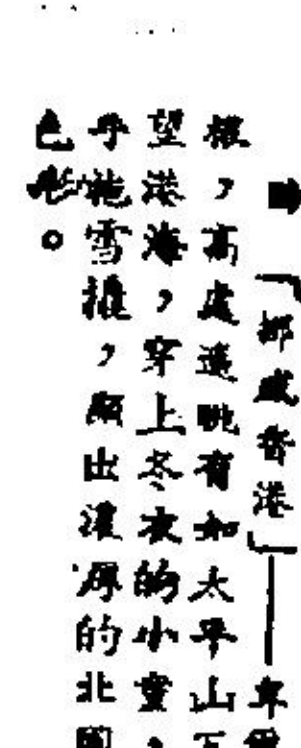 「挪威香港」——卑
根,高處遠眺有如太平山下
望港海,穿上冬衣的小童,
乎拖雪橇,顯出濃厚的北國
色彩。